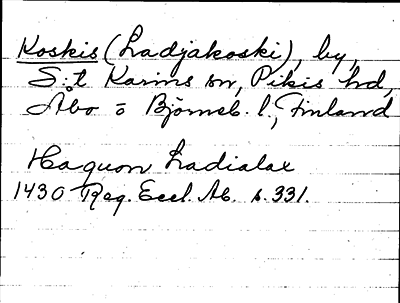 Koskis (Ladjakoski), by,
S:t Karins sn, Pikis hd,
Åbo o Björneb. l., Finland
Haquon Ladialax
1430 Reg. Eccl. Ab. s. 331.